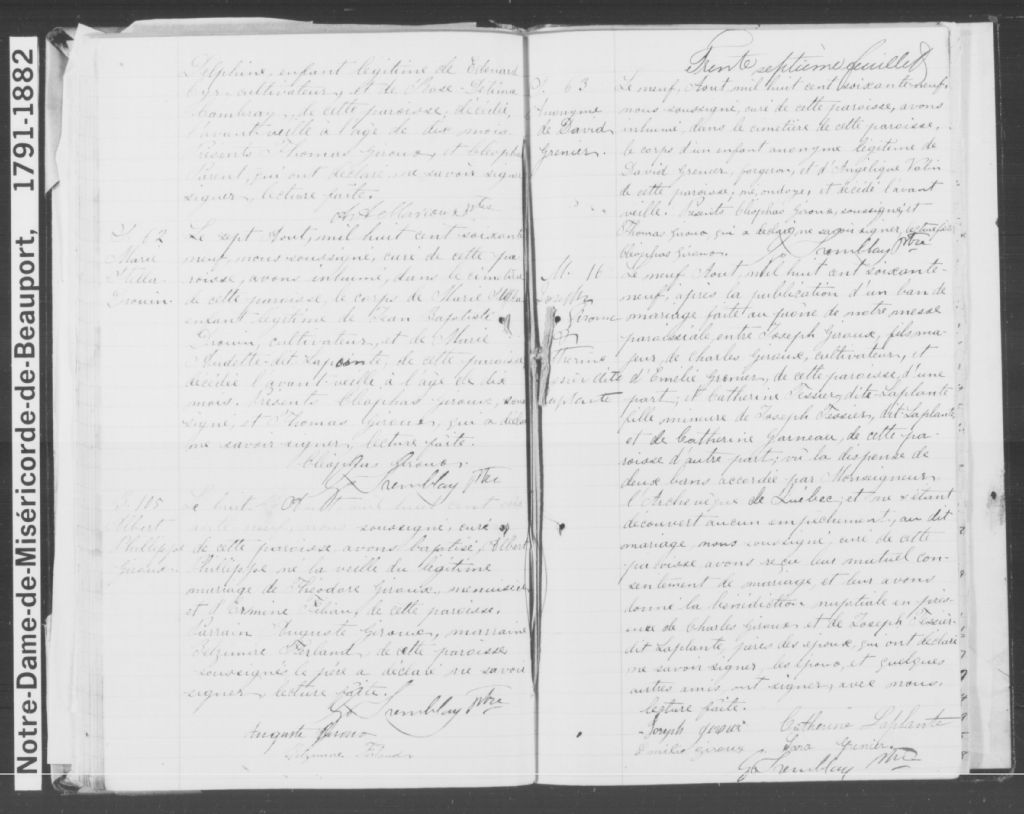 Notre-Dame-de-Miséricorde-de-Beauport, 1791-1882
Delphine, enfant légitime de Edouard
Cyr, cultivateur, et de Rose-Délima
de cette paroisse, décédée
l'avant veille à l'âge de dix mois.
Présents Thomas Giroux, et Cléophas
Parent, qui ont déclaré ne savoir signer
signer, lecture faite.
Ptre
S. 62
Marie
Stella
Drouin
Le sept Aout, mil huit cent soixante
neuf, nous soussigné, curé de cette pa-
roisse, avons inhumé, dans le cimetière
de cette paroisse, le corps de Marie Stella
enfant légitime de Jean Baptiste
Drouin, cultivateur, et de Marie
Audette dit Lapointe, de cette paroisse
décédée l'avant-veille, à l'âge de dix
mois. Présents Cléophas Giroux, sous
signé, et Thomas Giroux, qui a déclaré
ne savoir signer, lecture faite.
Cléophas Giroux
G. Tremblay Ptre
B. 105
Albert
Phillippe
Giroux
Le huit Aout, mil huit cent soi
xante neuf, nous soussigné, curé
de cette paroisse avons baptisé, Albert
Phillippe né la veille du légitime
mariage de Théodore Giroux, menuisier
et d'Ermine Filion, de cette paroisse.
Parrain Auguste Giroux, marraine
Zelzmire Ferland, de cette paroisse
soussignés le père a déclaré ne savoir
signer, lecture faite.
G. Tremblay Ptre
Auguste Giroux
Trente septième feuillet
S. 63
Anonyme
de David
Grenier.
Le neuf, Aout mil huit cent soixante-neuf,
nous soussigné, curé de cette paroisse, avons
inhumé, dans le cimetière de cette paroisse,
le corps d'un enfant anonyme légitime de
David Grenier, forgeron, et d'Angélique Valin
de cette paroisse, né, ondoyé, et décédé l'avant
veille. Présents Cléophas Giroux, soussigné, et
Thomas Giroux, qui a déclaré ne savoir signer, lecture faite
Cléophas Giroux. G. Tremblay Ptre
M. 16
Joseph
Giroux
&
Catherine
Tessier dite
Laplante
Le neuf Aout, mil huit cent soixante-
neuf, après la publication d'un ban de
mariage faite au prône de notre messe
paroissiale entre Joseph Giroux, fils ma-
jeur de Charles Giroux, cultivateur, et
d'Emélie Grenier, de cette paroisse, d'une
part; et Catherine Tessier, dite Laplante
fille mineure de Joseph Tessier, dit Laplante
et de Catherine Garneau, de cette pa-
roisse d'autre part; vu la dispense de
deux bans accordée par Monseigneur
l'Archevèque de Québec, et ne s'étant
découvert aucun empêchement, au dit
mariage, nous soussigné curé de cette
paroisse avons reçu leur mutuel con-
sentement de mariage, et leur avons
donné la bénédiction nuptiale en prés-
ence de Charles Giroux et de Joseph Tessier
dit Laplante, pères des époux, qui ont déclaré
ne savoir signer, les époux, et quelques
autres amis, ont signer, avec nous.
lecture faite.
Joseph giroux Catherine Laplante
Emilie Giroux Grenier
G. Tremblay Ptre